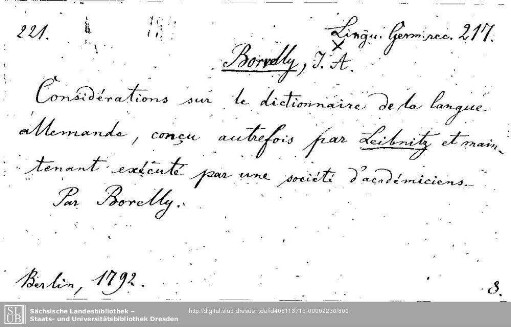 221.
Lingu. Germ. rec. 217.
Borrelly, J. A.
Considérations sur le dictionnaire de la langue
allemande, conçu autrefois par Leibnitz et main-
tenant exécuté par une société d'académiciens.
Par Borelly.
Berlin, 1792.
8.
Sächsische Landesbibliothek –
Staats- und Universitätsbibliothek Dresden